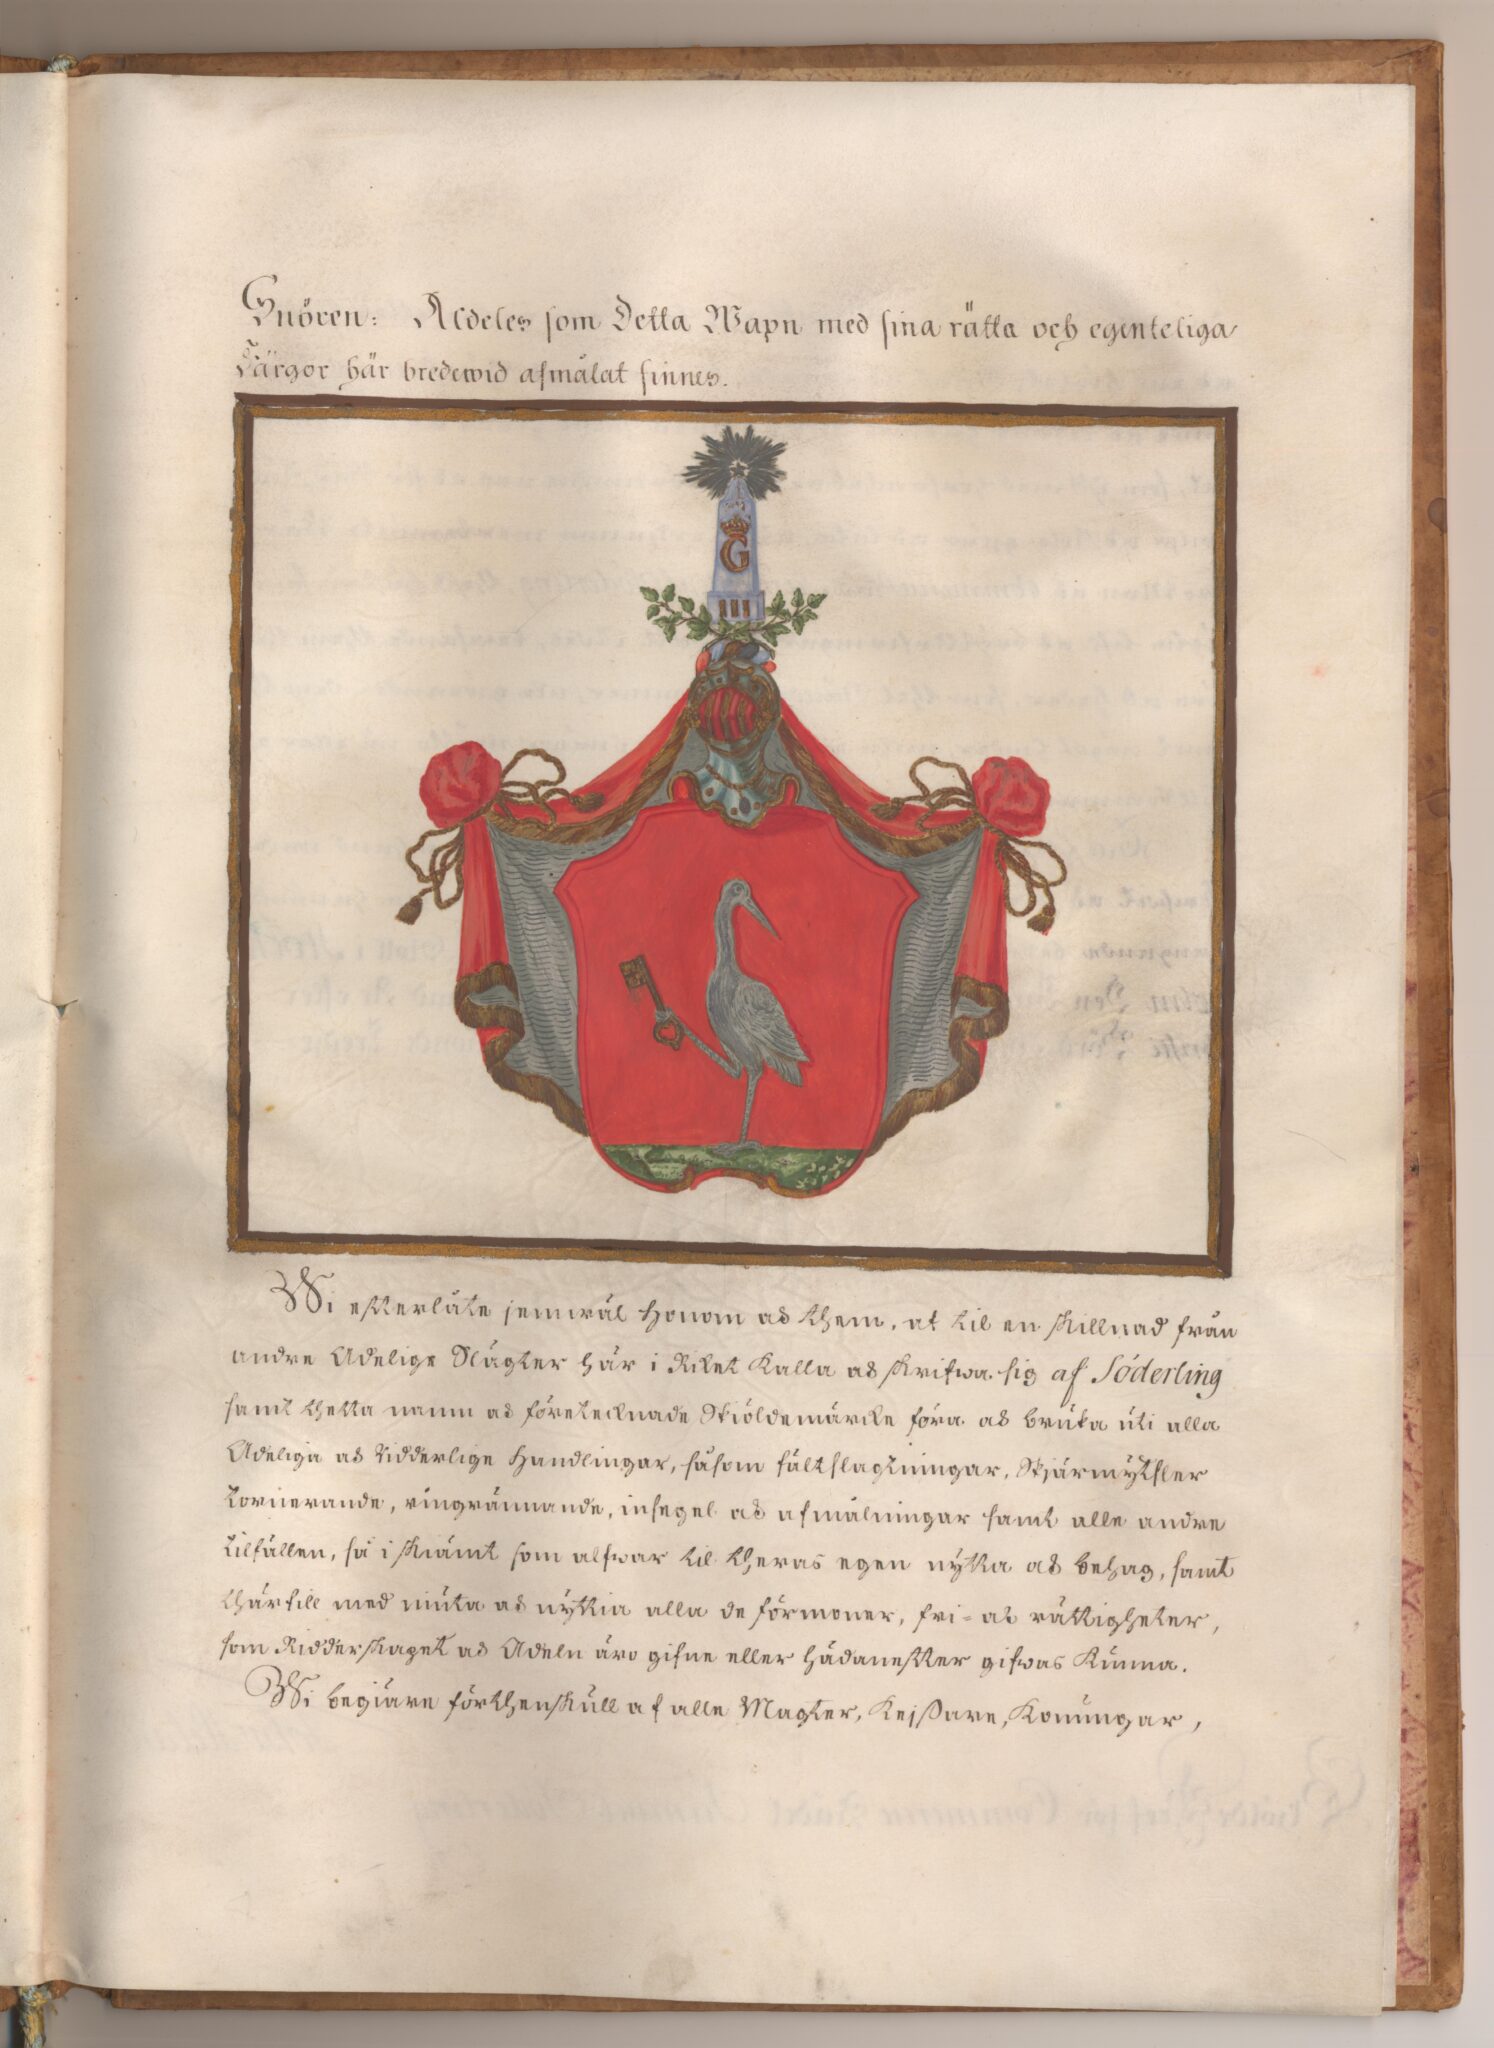 Snören: Aldeles som Detta Wapn med sina rätta och egenteliga
Färgor här bredewid afmålat finnes.
G
Wi efterlåte jemwäl honom och them, at til en skillnad från
andre Adelige Slägter här i Riket kalla och skrifwa sig af Söderling
samt thetta namn och företecknade Skiöldemärcke föra och bruka uti alla
Adeliga och ridderlige handlingar, såsom fältslagtningar, Skjärmytsler
tornerande, ringrännande, insegel och afmålningar samt alle andre
tilfällen, så i skiämt som alfwar til theras egen nytta och behag, samt
thärtill med niuta och nyttia alla de förmoner, fri- och rättigheter,
som Ridderskapet och Adeln äro gifne eller hädanefter gifwas kunna.
Wi begiäre förthenskull af alle Magter, Kejsare, Konungar,